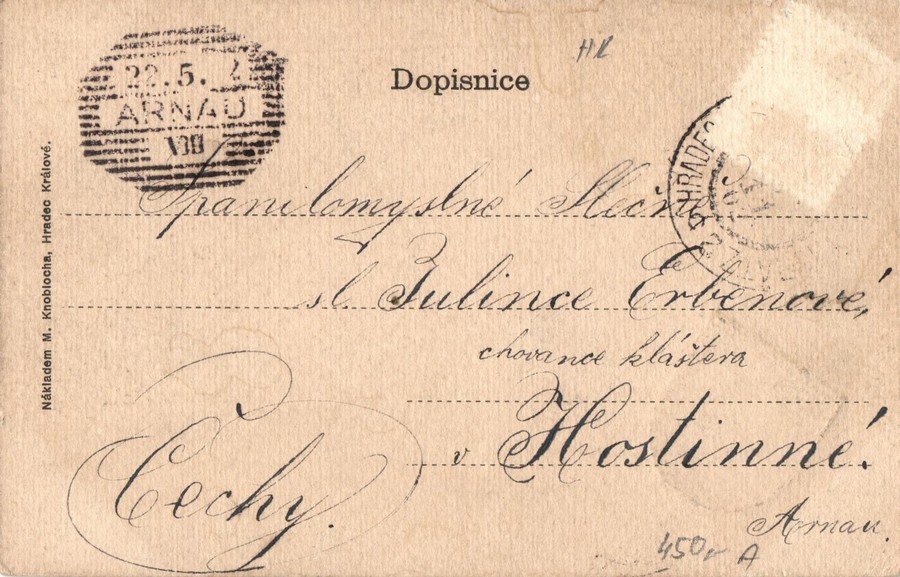 HK
Dopisnice
22.5.
ARNAU
HRADEC
Spanilomyslné Slečně
sl. Julince Erbenové,
chovance kláštera
v Hostinné.
Čechy.
Arnau.
450,- A
Nákladem M. Knoblocha, Hradec Králové.